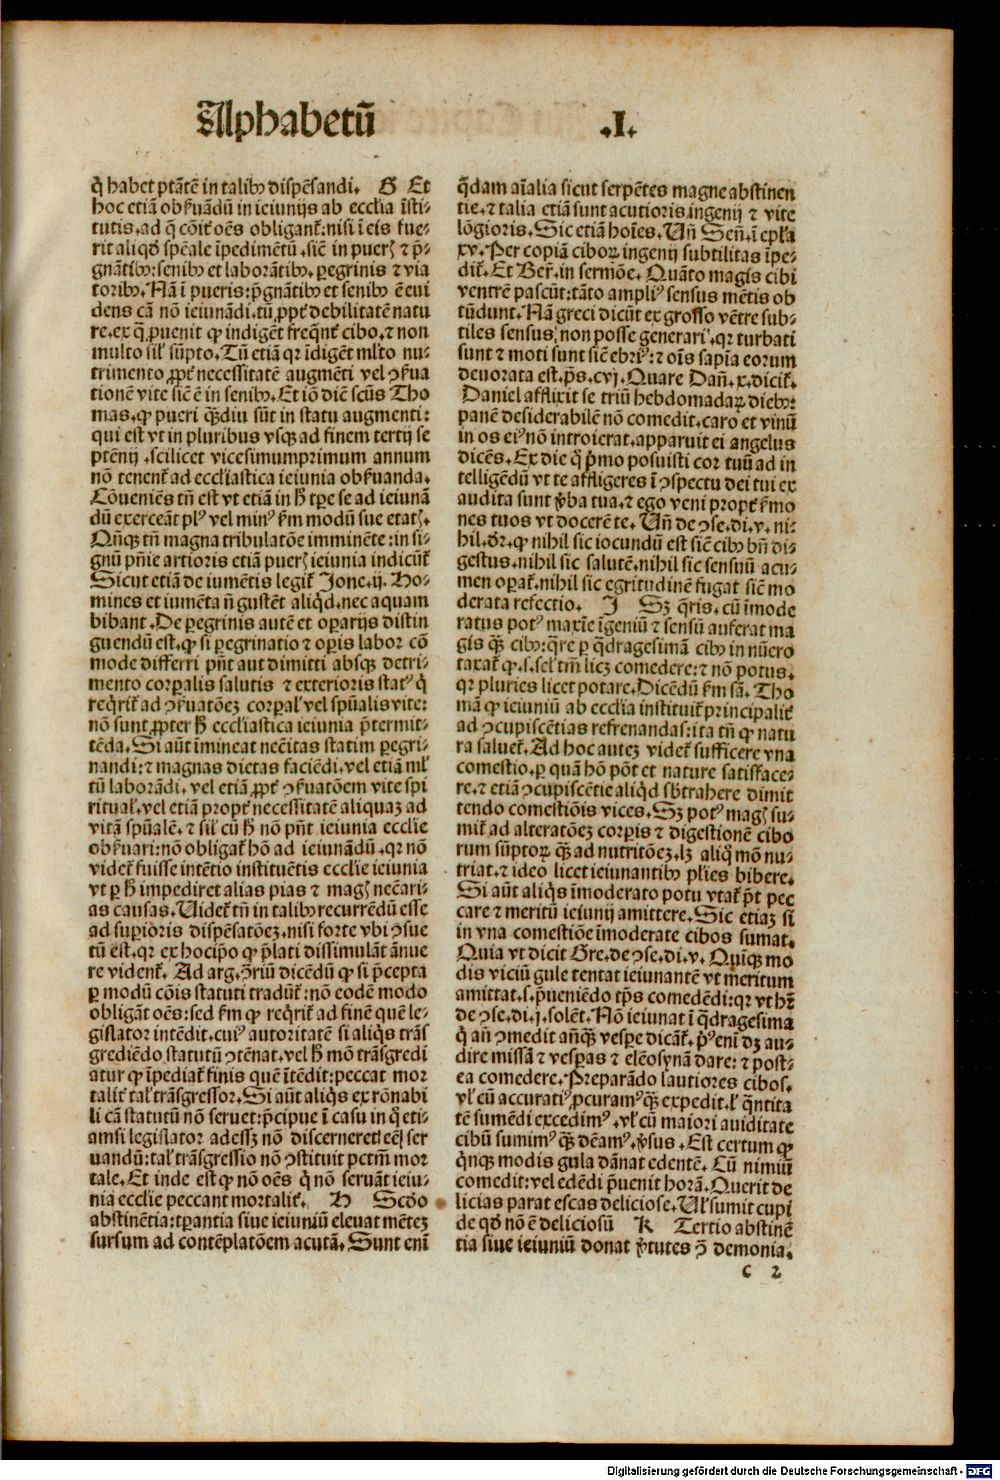 Alphabetū .I.
q̄ habet ptātē in talibꝰ dispēsandi. G Et
hoc etiā obẞuādū in ieiunijs ab ecclīa īsti⸗
tutis.ad q̄ cōit̄ oēs obligant̄:nisi ī eis fue⸗
rit aliqd̄ spēale īpedimētū.sic̄ in pueꝭ ⁊ p̄⸗
gnātibꝰ:senibꝰ et laborātibꝰ.ꝑegrinis ⁊ via
toribꝰ.Nā ī pueris:p̄gnātibꝰ et senibꝰ ē eui
dens cā nō ieiunādi.tū ꝓpt̄ debilitatē natu
re.ex q̄ ꝓuenit ꝙ indigēt freq̄nt̄ cibo.⁊ non
multo sil̄ sūpto.Tū etiā qꝛ īdigēt ml̄to nu⸗
trimento ꝓpt̄ necessitatē augmēti vel ꝯẞua
tionē vite sic̄ ē in senibꝰ.Et iō diē scūs Tho
mas.ꝙ pueri qꝫdiu sūt in statu augmenti:
qui est vt in pluribus vsqꝫ ad finem tertij se
ptēnij .scilicet vicesimumprimum annum
nō tenent̄ ad ecclīastica ieiunia obẞuanda.
Cōueniēs tn̄ est vt etiā in h̄ tpe se ad ieiunā
dū exerceāt plꝰ vel minꝰ ẞm modū sue etatꝭ.
Qn̄qꝫ tn̄ magna tribulatōe imminēte:in si⸗
gnū pn̄ie artioris etiā pueꝭ ieiunia indicūt̄
Sicut etiā de iumētis legit̄ Jone.ij. Ho⸗
mines et iumēta n̄ gustēt aliqd̄.nec aquam
bibant.De ꝑegrinis autē et oꝑarijs distin
guendū est.ꝙ si ꝑegrinatio ⁊ oꝑis labor cō
mode differri pn̄t aut dimitti absqꝫ detri⸗
mento corꝑalis salutis ⁊ exterioris statꝰ q̄
req̄rit̄ ad ꝯẞuatōeꝫ corꝑal̄ vel spūalis vite:
nō sunt ꝓpter h̄ ecclīastica ieiunia p̄termit⸗
tēda.Si aūt īmineat nec̄itas statim ꝑegri⸗
nandi:⁊ magnas dietas faciēdi.vel etiā ml̄
tū laborādi. vel etiā ꝓpt̄ ꝯẞuatōem vite spi
ritual̄.vel etiā propt̄ necessitatē aliquaꝫ ad
vitā spūalē.⁊ sil̄ cū h̄ nō pn̄t ieiunia ecclīe
obẞuari:nō obligat̄ hō ad ieiunādū.qꝛ nō
videt̄ fuisse intētio instituētis ecclīe ieiunia
vt ꝑ h̄ impediret alias pias ⁊ magꝭ nec̄ari⸗
as causas.Videt̄ tn̄ in talibꝰ recurrēdū esse
ad suꝑioris dispēsatōeꝫ.nisi forte vbi ꝯsue
tū est.qꝛ ex hocip̄o ꝙ p̄lati dissimulāt ānue
re vident̄. Ad arg.ꝯriū dicēdū ꝙ si p̄cepta
ꝑ modū cōis statuti tradūt̄:nō eodē modo
obligāt oēs:sed ẞm ꝙ req̄rit̄ ad finē quē le⸗
gislator intēdit.cuiꝰ autoritatē si aliq̄s trās
grediēdo statutū ꝯtēnat.vel h̄ mō trāsgredi
atur ꝙ īpediat̄ finis quē ītēdit:peccat mor
talit̄ tal̄ trāsgressor.Si aūt aliq̄s ex rōnabi
li cā statutū nō seruet:p̄cipue ī casu in q̄ eti⸗
amsi legislator adessꝫ nō discerneret eēꝭ ser
uandū:tal̄ trāsgressio nō ꝯstituit pctm̄ mor
tale.Et inde est ꝙ nō oēs q̄ nō seruāt ieiu⸗
nia ecclīe peccant mortalit̄. H Scd̄o
abstinētia:tꝑantia siue ieiuniū eleuat mēteꝫ
sursum ad contēplatōem acutā.Sunt enī
q̄dam aīalia sicut serpētes magne abstinen
tie.⁊ talia etiā sunt acutioris ingenij ⁊ vite
lōgioris.Sic etiā hoīes.Un̄ Sen̄.ī epl̄a
xv.Per copiā ciboꝝ ingenij subtilitas īpe⸗
dit̄.Et Ber̄.in sermōe.Quāto magis cibi
ventrē pascūt:tāto ampliꝰ sensus mētis ob
tūdunt.Nā greci dicūt ex grosso vētre sub⸗
tiles sensus non posse generari.qꝛ turbati
sunt ⁊ moti sunt sic̄ ebriꝰ:⁊ oīs sapīa eorum
deuorata est.ps̄.cvj.Quare Dan̄.x.dicit̄.
Daniel afflixit se triū hebdomadaꝝ diebꝰ:
panē desiderabilē nō comedit.caro et vinū
in os eiꝰ nō introierat.apparuit ei angelus
dicēs.Ex die q̄ p̄mo posuisti cor tuū ad in
telligēdū vt te affligeres ī ꝯspectu dei tui ex
audita sunt v̄ba tua.⁊ ego veni propt̄ ẞmo
nes tuos vt docerē te.Un̄ de ꝯse.di.v.ni⸗
hil.dr̄.ꝙ nihil sic iocundū est sic̄ cibꝰ bn̄ di⸗
gestus.nihil sic salutē.nihil sic sensuū acu⸗
men oꝑat̄.nihil sic egritudinē fugat sic̄ mo
derata refectio. J Sꝫ q̄ris.cū īmode
ratus potꝰ maxīe īgeniū ⁊ sensū auferat ma
gis qꝫ cibꝰ:q̄re ꝑ q̄dragesimā cibꝰ in nūero
taxat̄ ꝙ.s.sel̄ tm̄ licꝫ comedere:⁊ nō potus.
qꝛ pluries licet potare.Dicēdū ẞm sā.Tho
mā ꝙ ieiuniū ab ecclīa instituit̄ principalit̄
ad ꝯcupiscētias refrenandas:ita tn̄ ꝙ natu
ra saluet̄.Ad hoc auteꝫ videt̄ sufficere vna
comestio.ꝑ quā hō pōt et nature satisface⸗
re.⁊ etiā ꝯcupiscētie aliqd̄ sb̄trahere dimit
tendo comestiōis vices.Sꝫ potꝰ magꝭ su⸗
mit̄ ad alteratōeꝫ corpis ⁊ digestionē cibo
rum sūptoꝝ qꝫ ad nutritōeꝫ.lꝫ aliq̄ mō nu⸗
triat.⁊ ideo licet ieiunantibꝰ pl̄ies bibere.
Si aūt aliq̄s īmoderato potu vtat̄ pt̄ pec
care ⁊ meritū ieiunij amittere.Sic etiaꝫ si
in vna comestiōe īmoderate cibos sumat.
Quia vt dicit Gre.de ꝯse.di.v.Quīqꝫ mo
dis viciū gule tentat ieiunantē vt meritum
amittat.s.p̄ueniēdo tp̄s comedēdi:qꝛ vt hr̄
de ꝯse.di.j.solēt.Nō ieiunat ī q̄dragesima
q̄ an̄ ꝯmedit an̄qꝫ vesꝑe dicāt̄.pꝰ enī dꝫ au⸗
dire missā ⁊ vesꝑas ⁊ elēosynā dare:⁊ post⸗
ea comedere.Preparādo lautiores cibos.
vl̄ cū accuratiꝰ ꝓcuramꝰ qꝫ expedit.l̄ q̄ntita
tē sumēdi excedimꝰ.vl̄ cū maiori auiditate
cibū sumimꝰ qꝫ dēamꝰ.v̄sus .Est certum ꝙ
q̄nqꝫ modis gula dānat edentē.Cū nimiū
comedit:vel edēdi p̄uenit horā.Querit de
licias parat escas deliciose.Ul̄ sumit cupi
de qd̄ nō ē deliciosū K Tertio abstinē
tia siue ieiuniū donat v̄tutes ꝯ̄ demonia.
c 2
Digitalisierung gefördert durch die Deutsche Forschungsgemeinschaft - DFG